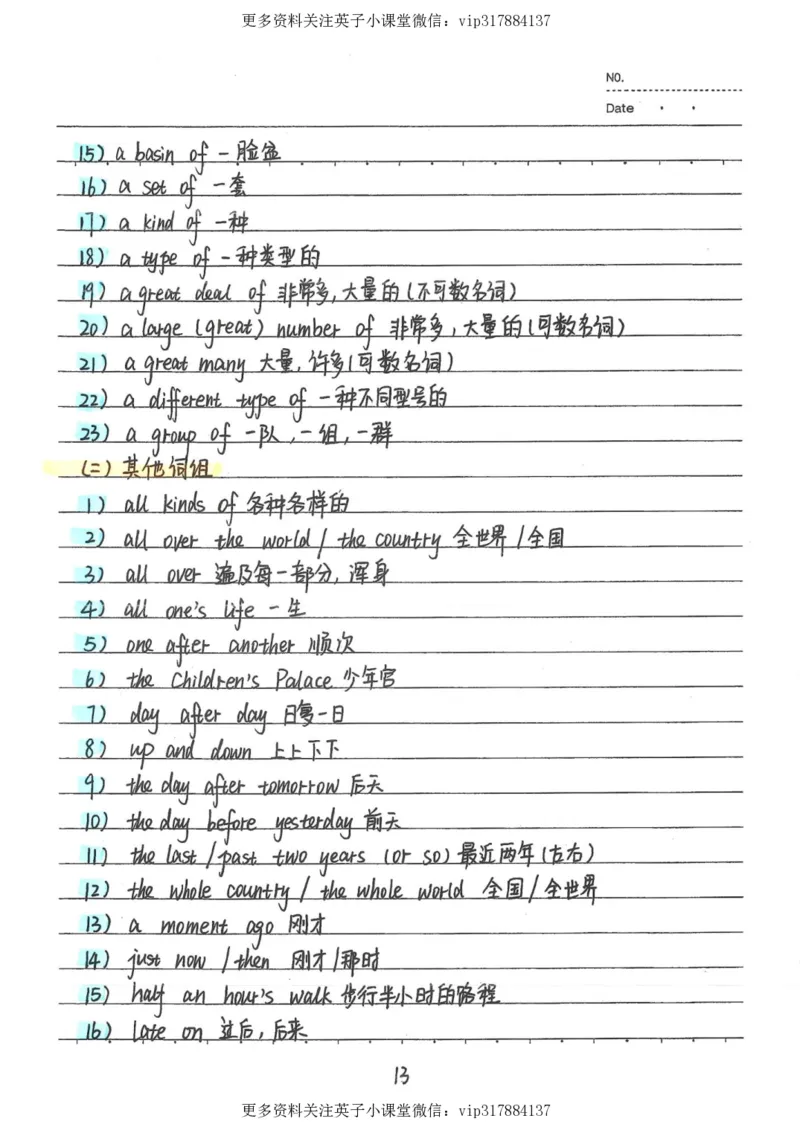 更多资料关注英子小课堂微信：vip317884137
NO.
Date
15) a basin of 一脸盆
16) a set of 一套
17) a kind of 一种
18) a type of 一种类型的
19) a great deal of 非常多,大量的(不可数名词)
20) a large (great) number of 非常多,大量的(可数名词)
21) a great many 大量,许多(可数名词)
22) a different type of 一种不同型号的
23) a group of 一队,一组,一群
(二) 其他词组
1) all kinds of 各种各样的
2) all over the world / the country 全世界/全国
3) all over 遍及每一部分,浑身
4) all one's life 一生
5) one after another 顺次
6) the Children's Palace 少年宫
7) day after day 日复一日
8) up and down 上上下下
9) the day after tomorrow 后天
10) the day before yesterday 前天
11) the last /past two years (or so) 最近两年(左右)
12) the whole country / the whole world 全国/全世界
13) a moment ago 刚才
14) just now /then 刚才/那时
15) half an hour's walk 步行半小时的路程
16) late on 过后,后来
13
更多资料关注英子小课堂微信：vip317884137